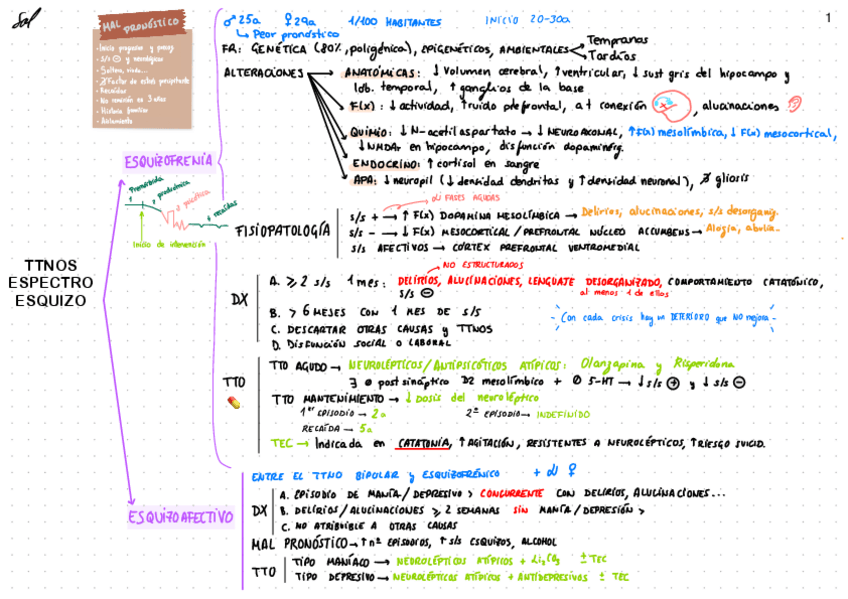 Sal
1
MAL PRONÓSTICO
• Inicio progresivo y precoz
• s/s ⊖ y neurológicos
• Soltero, viudo...
• ∄ Factor de estrés precipitante
• Recaídas
• No remisión en 3 años
• Historia familiar
• Aislamiento
TTNOS
ESPECTRO
ESQUIZO
ESQUIZOFRENIA
♂25a ♀29a 1/100 HABITANTES INICIO 20-30a
↳ Peor pronóstico
FR: GENÉTICA (80%, poligénica), EPIGENÉTICOS, AMBIENTALES
Tempranas
Tardías
ALTERACIONES
ANATÓMICAS: ↓ Volumen cerebral, ↑ ventricular, ↓ sust gris del hipocampo y
lob. temporal, ↑ ganglios de la base
F(x): ↓ actividad, ↑ ruido prefrontal, at conexión, alucinaciones
QUIMIO: ↓ N-acetil aspartato → ↓ NEUROAXONAL, ↑ F(x) mesolímbica, ↓ F(x) mesocortical,
↓ NMDAr en hipocampo, disfunción dopaminérg.
ENDOCRINO: ↑ cortisol en sangre
APA: ↓ neuropil (↓ densidad dendritas y ↑ densidad neuronal), ∄ gliosis
Premórbida
prodrómica
psicótica
recaídas
Inicio de intervención
FISIOPATOLOGÍA
en FASES AGUDAS
s/s + → ↑ F(x) DOPAMINA MESOLÍMBICA → Delirios, alucinaciones, s/s desorganiz.
s/s - → ↓ F(x) MESOCORTICAL / PREFRONTAL NÚCLEO ACCUMBENS → Alogia, abulia...
s/s AFECTIVOS → CORTEX PREFRONTAL VENTROMEDIAL
DX
NO ESTRUCTURADOS
A. ≥ 2 s/s 1 mes: DELIRIOS, ALUCINACIONES, LENGUAJE DESORGANIZADO, COMPORTAMIENTO CATATÓNICO,
s/s ⊖
al menos 1 de ellos
B. > 6 MESES CON 1 MES DE s/s
- Con cada crisis hay un DETERIORO que NO mejora -
C. DESCARTAR OTRAS CAUSAS y TTNOS
D. DISFUNCIÓN SOCIAL O LABORAL
TTO
TTO AGUDO → NEUROLÉPTICOS/ANTIPSICÓTICOS ATÍPICOS: Olanzapina y Risperidona
∃ ∅ postsináptico D2 mesolímbico + ∅ 5-HT → ↓ s/s ⊕ y ↓ s/s ⊖
TTO MANTENIMIENTO → ↓ dosis del neuroléptico
1er EPISODIO → 2a 2º EPISODIO → INDEFINIDO
RECAÍDA → 5a
TEC → Indicada en CATATONÍA, ↑ AGITACIÓN, RESISTENTES A NEUROLÉPTICOS, ↑ RIESGO SUICID.
ESQUIZOAFECTIVO
ENTRE EL TTNO BIPOLAR y ESQUIZOFRÉNICO + en ♀
DX
A. EPISODIO DE MANÍA/DEPRESIVO > CONCURRENTE CON DELIRIOS, ALUCINACIONES...
B. DELIRIOS/ALUCINACIONES ≥ 2 SEMANAS SIN MANÍA/DEPRESIÓN >
C. NO ATRIBUIBLE A OTRAS CAUSAS
MAL PRONÓSTICO → ↑ nº EPISODIOS, ↑ s/s ESQUIZOS, ALCOHOL
TTO
TIPO MANÍACO → NEUROLÉPTICOS ATÍPICOS + Li₂CO₃ ± TEC
TIPO DEPRESIVO → NEUROLÉPTICOS ATÍPICOS + ANTIDEPRESIVOS ± TEC